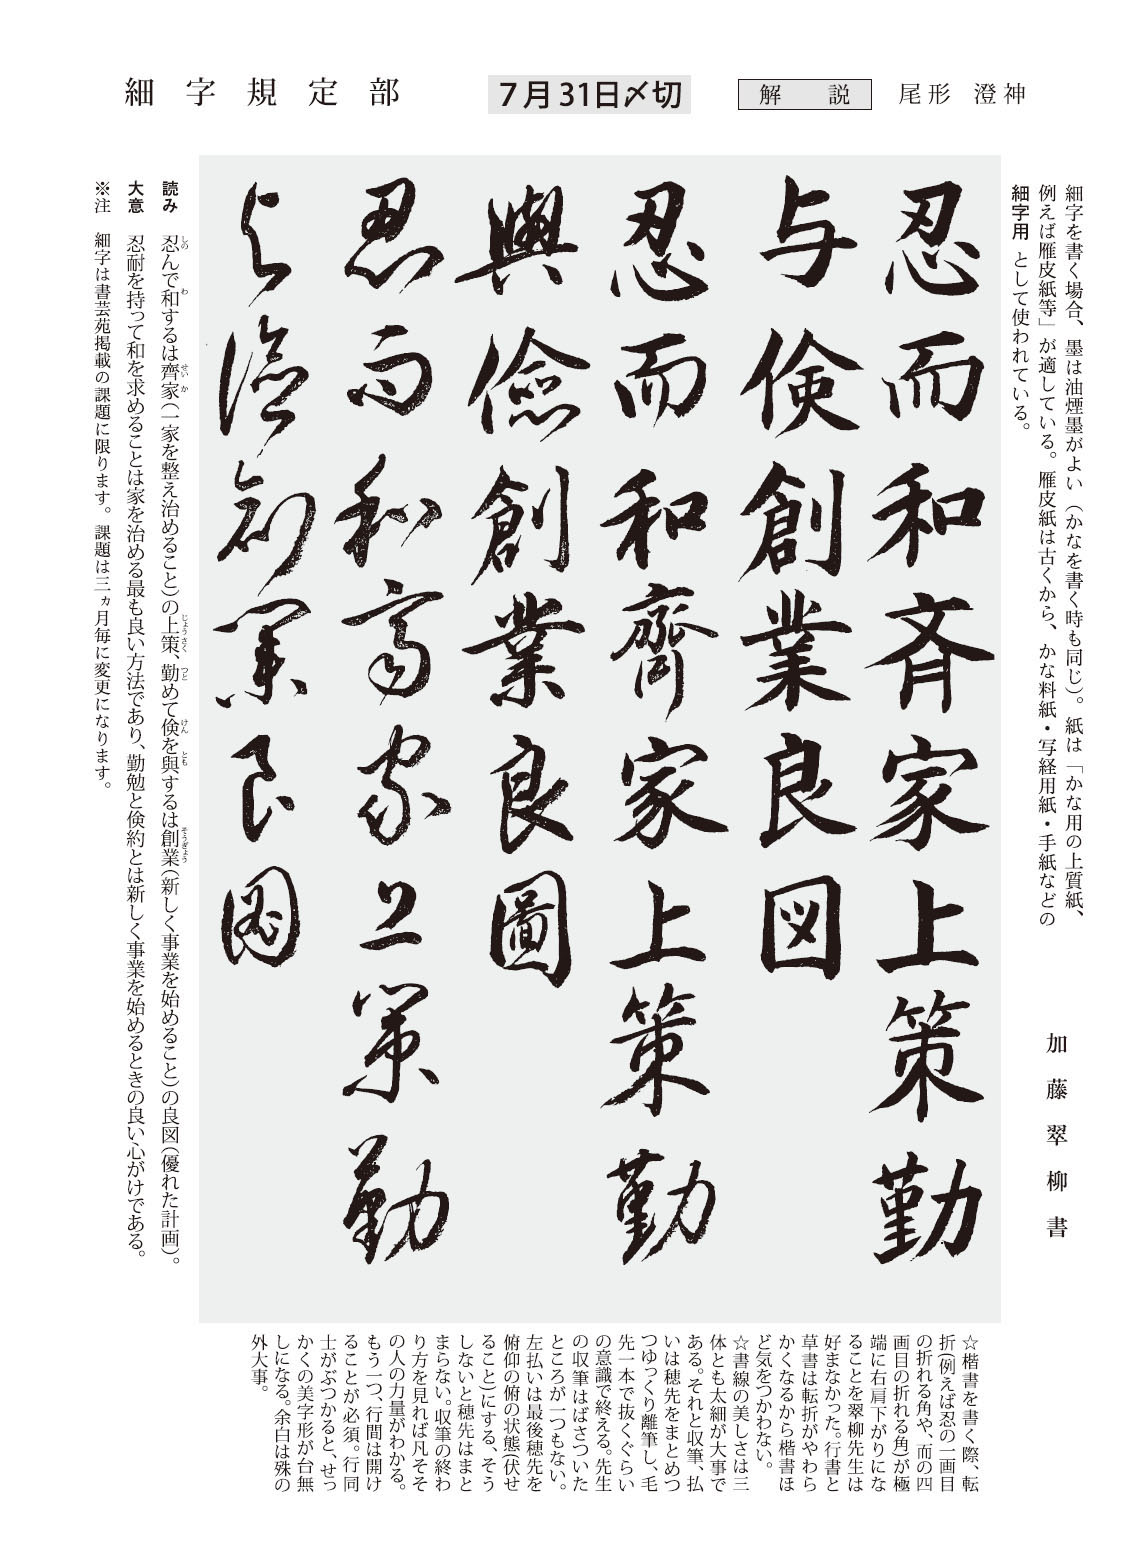 細字規定部
7月31日〆切
解説
尾形 澄神
細字を書く場合、墨は油煙墨がよい（かなを書く時も同じ）。紙は「かな用の上質紙、
例えば雁皮紙等」が適している。雁皮紙は古くから、かな料紙・写経用紙・手紙などの
細字用 として使われている。
加藤翠柳書
忍而和斉家上策勤
与倹創業良図
忍而和齊家上策勤
與儉創業良圖
忍而和齊家上策勤
与儉創業良図
読み 忍んで和するは齊家（一家を整え治めること）の上策、勤めて倹を與するは創業（新しく事業を始めること）の良図（優れた計画）。
しの わ せいか じょうさく つと けん とも そうぎょう
大意 忍耐を持って和を求めることは家を治める最も良い方法であり、勤勉と倹約とは新しく事業を始めるときの良い心がけである。
※注 細字は書芸苑掲載の課題に限ります。課題は三ヵ月毎に変更になります。
☆楷書を書く際、転
折（例えば忍の一画目
の折れる角や、而の四
画目の折れる角）が極
端に右肩下がりにな
ることを翠柳先生は
好まなかった。行書と
草書は転折がやわら
かくなるから楷書ほ
ど気をつかわない。
☆書線の美しさは三
体とも太細が大事で
ある。それと収筆、払
いは穂先をまとめつ
つゆっくり離筆し、毛
先一本で抜くぐらい
の意識で終える。先生
の収筆はばさついた
ところが一つもない。
左払いは最後穂先を
俯仰の俯の状態（伏せ
ること）にする、そう
しないと穂先はまと
まらない。収筆の終わ
り方を見れば凡そそ
の人の力量がわかる。
もう一つ、行間は開け
ることが必須。行同
士がぶつかると、せっ
かくの美字形が台無
しになる。余白は殊の
外大事。